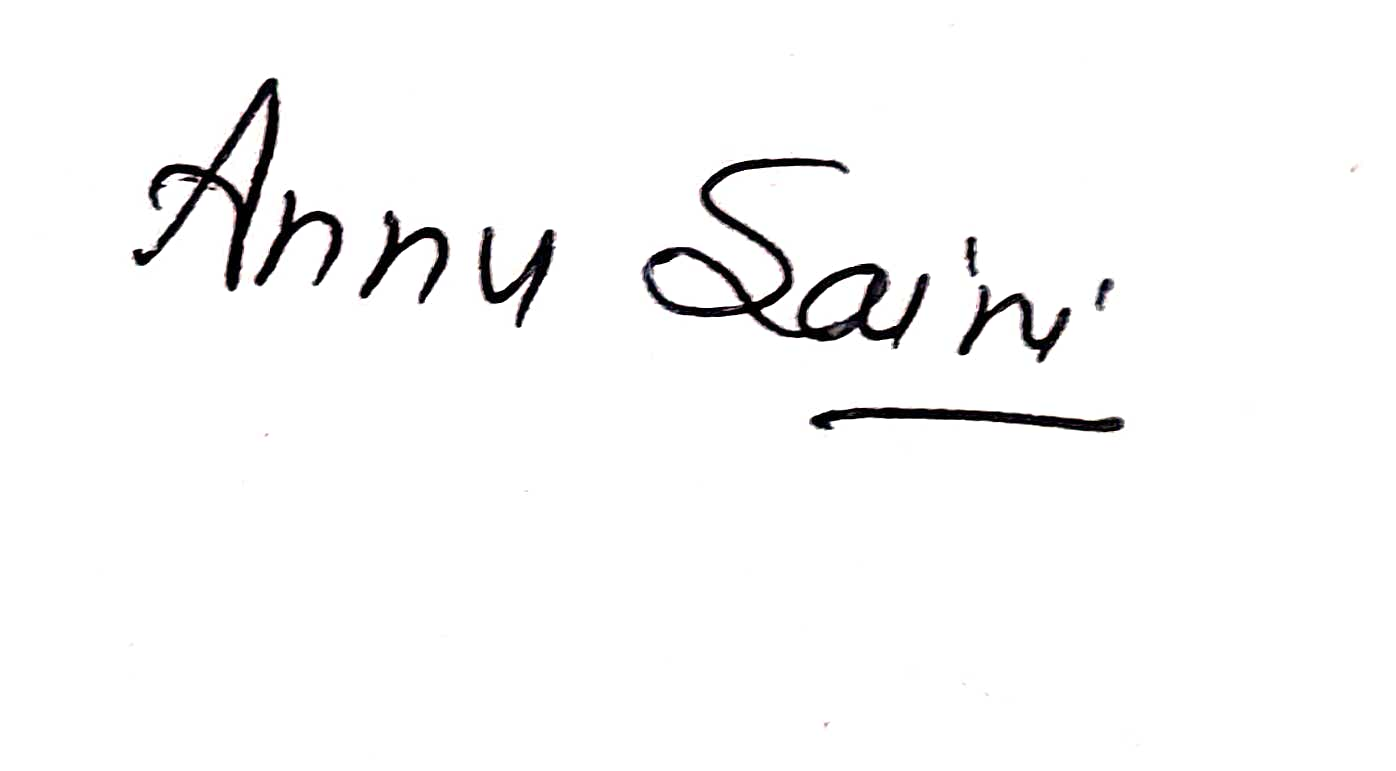 Annu Saini